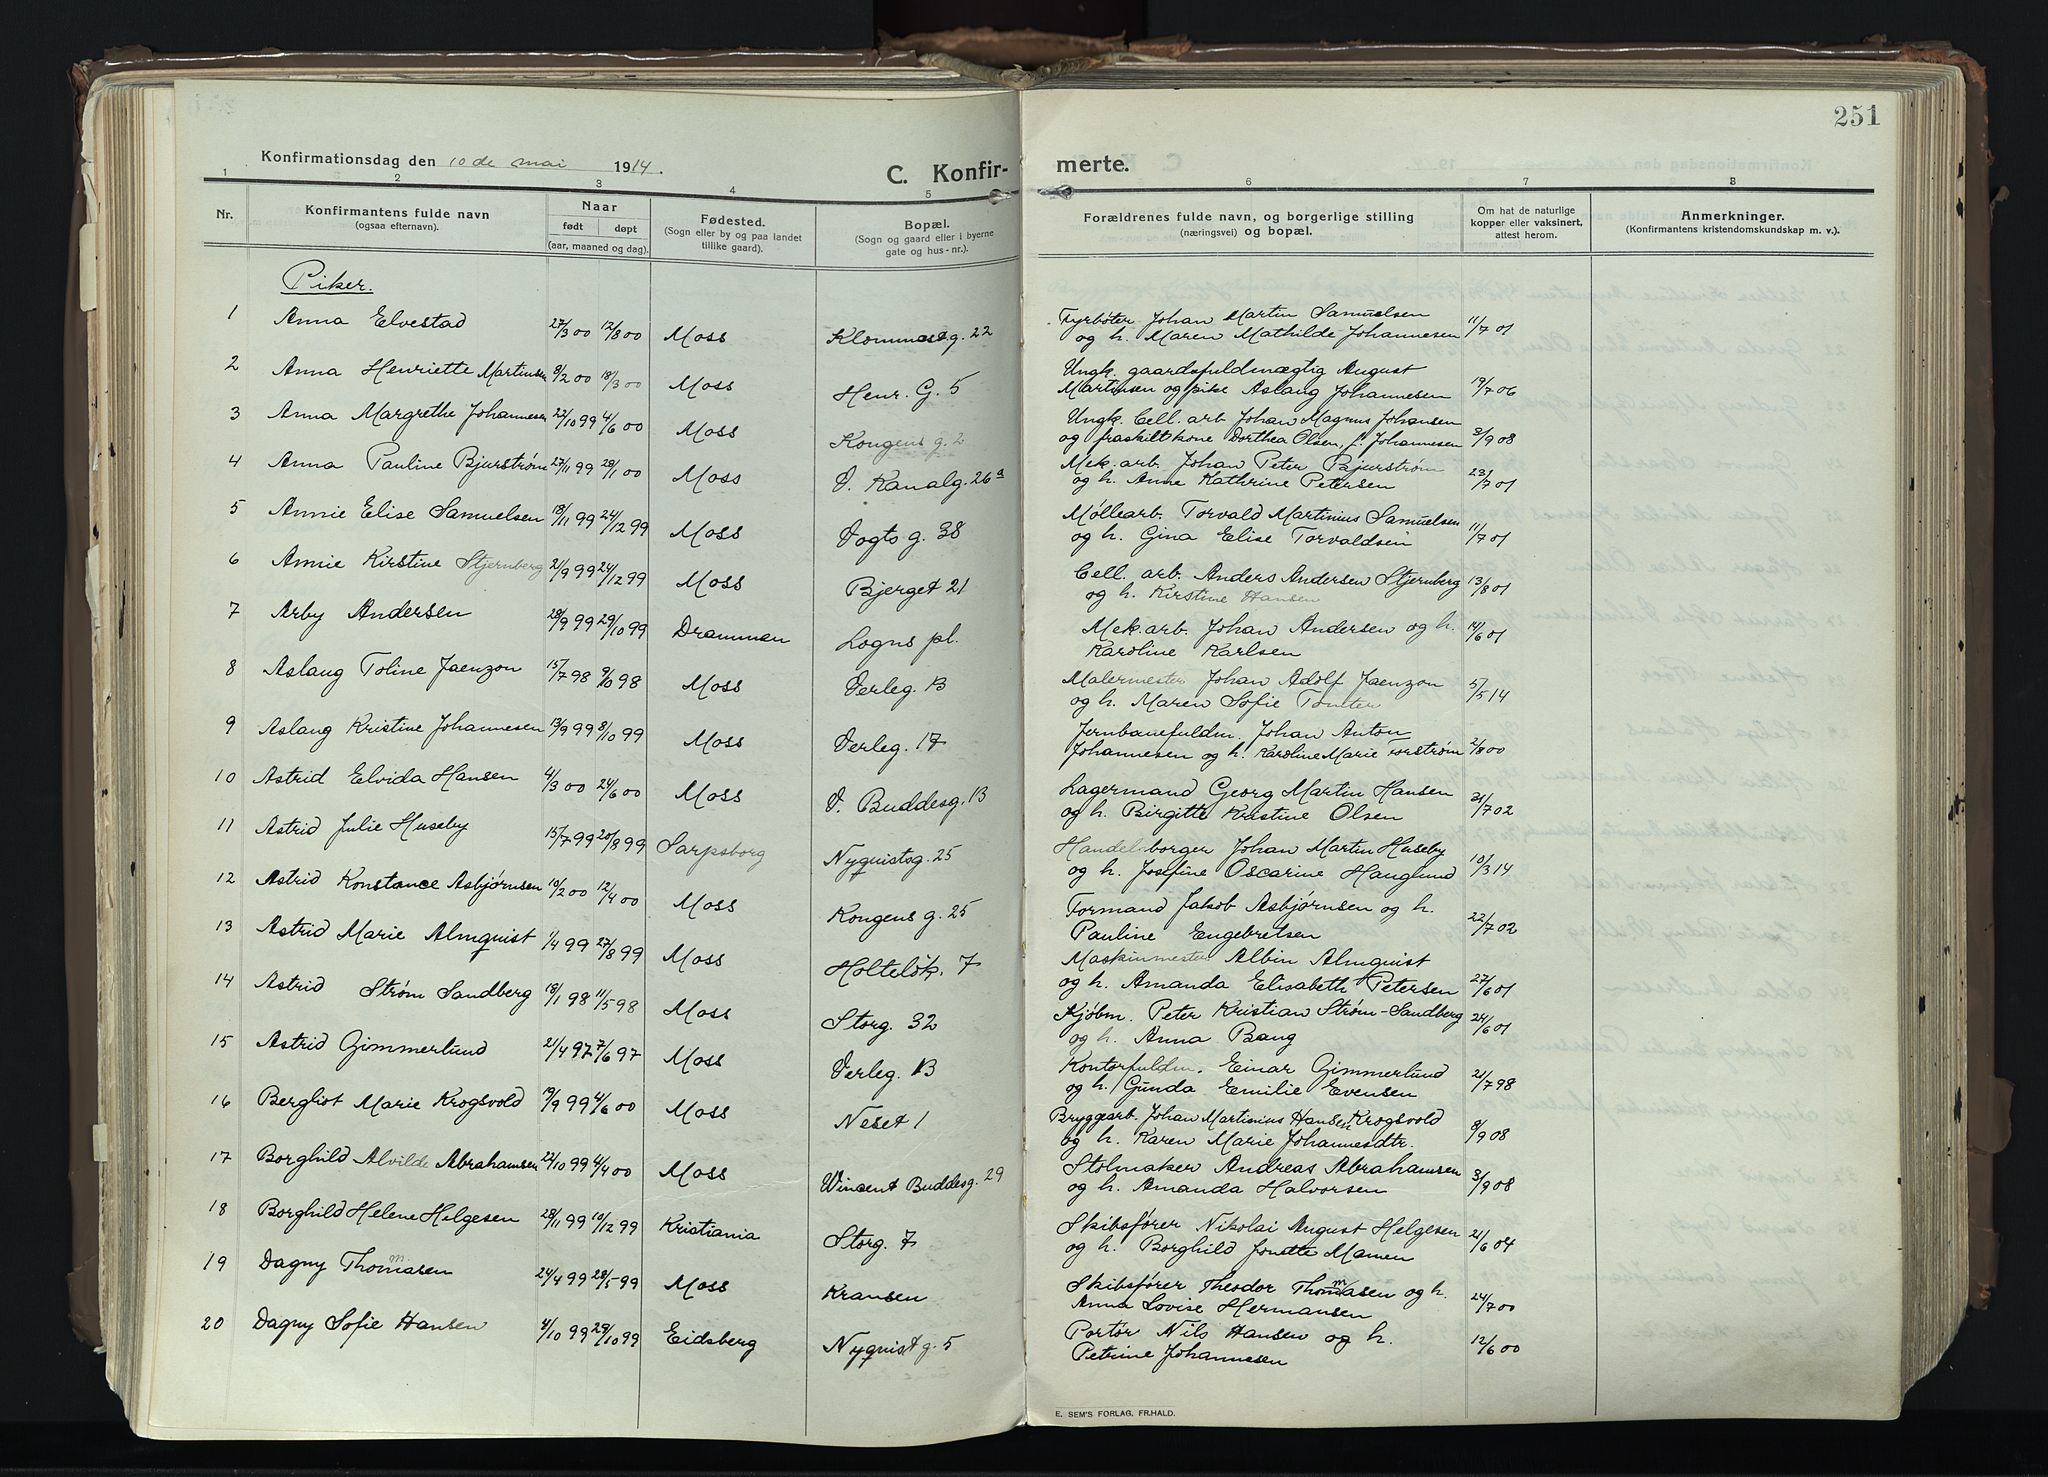 251
Konfirmationsdag den 10 de mai 1914.
C. Konfir-
merte.
1 2 3 4 5 6 7 8
Nr.
Konfirmantens fulde navn
(ogsaa efternavn).
Naar
født døpt
(aar, maaned og dag).
Fødested.
(Sogn eller by og paa landet
tillike gaard).
Bopæl.
(Sogn og gaard eller i byerne
gate og hus-nr.).
Forældrenes fulde navn, og borgerlige stilling
(næringsvei) og bopæl.
Om hat de naturlige
kopper eller vaksinert,
attest herom.
Anmerkninger.
(Konfirmantens kristendomskundskap m. v.).
Piker.
1 Anna Elvestad 27/3 00 12/8 00 Moss Klommest g. 22 Fyrbøter Johan Martin Samuelsen 11/7 01
og h. Maren Mathilde Johannesen
2 Anna Henriette Martinsen 9/2 00 18/3 00 Moss Henr. G. 5 Ungk. gaardsfuldmægtig August
Martinsen og pike Aslaug Johannesen 19/7 06
3 Anna Margrethe Johannesen 22/10 99 4/6 00 Moss Kongens g. 2 Ungk. Cell. arb. Johan Magnus Johansen
og fraskilt kone Dorthea Olsen, f. Johannesen 3/9 08
4 Anna Pauline Bjurstrøm 27/11 99 28/1 00 Moss V. Kanalg. 26a Mek. arb. Johan Peter Bjurstrøm
og h. Anne Kathrine Petersen 23/7 01
5 Annie Elise Samuelsen 18/11 99 24/12 99 Moss Vogts g. 38 Møllearb. Torvald Martinius Samuelsen
og h. Gina Elise Torvaldsen 11/7 01
6 Annie Kirstine Stjernberg 21/9 99 24/12 99 Moss Bjerget 21 Cell. arb. Anders Andersen Stjernberg 13/8 01
og h. Kirstine Hansen
7 Arby Andersen 28/9 99 29/10 99 Drammen Logns pl. Mek. arb. Johan Andersen og h. 14/6 01
Karoline Karlsen
8 Aslaug Toline Jaenzon 15/7 98 9/10 98 Moss Verleg. 13 Malermester Johan Adolf Jaenzon 5/5 14
og h. Maren Sofie Tonter
9 Aslaug Kristine Johannesen 13/9 99 8/10 99 Moss Verleg. 17 Jernbanefuldm. Johan Anton
Johannesen og h. Karoline Marie Forstrøm 2/8 00
10 Astrid Elvida Hansen 4/3 00 24/6 00 Moss V. Buddesg. 13 Lagermand Georg Martin Hansen 31/7 02
og h. Birgitte Kristine Olsen
11 Astrid Julie Huseby 15/7 99 20/8 99 Sarpsborg Nyquistsg. 25 Handelsborger Johan Martin Huseby
og h. Josefine Oscarine Hauglund 10/3 14
12 Astrid Konstance Asbjørnsen 10/2 00 12/4 00 Moss Kongens g. 25 Formand Jakob Asbjørnsen og h. 22/7 02
Pauline Engebretsen
13 Astrid Marie Almquist 1/4 99 27/8 99 Moss Holteløk. 7 Maskinmester Albin Almquist
og h. Amanda Elisabeth Petersen 27/6 01
14 Astrid Strøm Sandberg 18/1 98 11/5 98 Moss Storg. 32 Kjøbm. Peter Kristian Strøm-Sandberg 24/6 01
og h. Anna Bang
15 Astrid Gimmerlund 21/4 97 7/6 97 Moss Verleg. 13 Kontorfuldm. Einar Gimmerlund 21/7 98
og h. Gunda Emilie Evensen
16 Bergliot Marie Krogsvold 19/9 99 4/6 00 Moss Neset 1 Bryggearb. Johan Martinius Hansen Krogsvold
og h. Karen Marie Johannesdtr. 8/9 08
17 Borghild Alvilde Abrahamsen 22/10 99 4/4 00 Moss Wincent Buddesg. 29 Stolmaker Andreas Abrahamsen 3/9 08
og h. Amanda Halvorsen
18 Borghild Helene Helgesen 28/11 99 10/12 99 Kristiania Storg. 7 Skibsfører Nikolai August Helgesen 21/6 04
og h. Borghild Jonette Mamen
19 Dagny Thommasen 24/4 99 28/5 99 Moss Kransen Skibsfører Theodor Thommasen og h. 24/7 00
Anna Lovise Hermansen
20 Dagny Sofie Hansen 4/10 99 29/10 99 Eidsberg Nyquist g. 5 Portør Nils Hansen og h. 12/6 00
Petrine Johannesen
E. SEM'S FORLAG, FR.HALD.